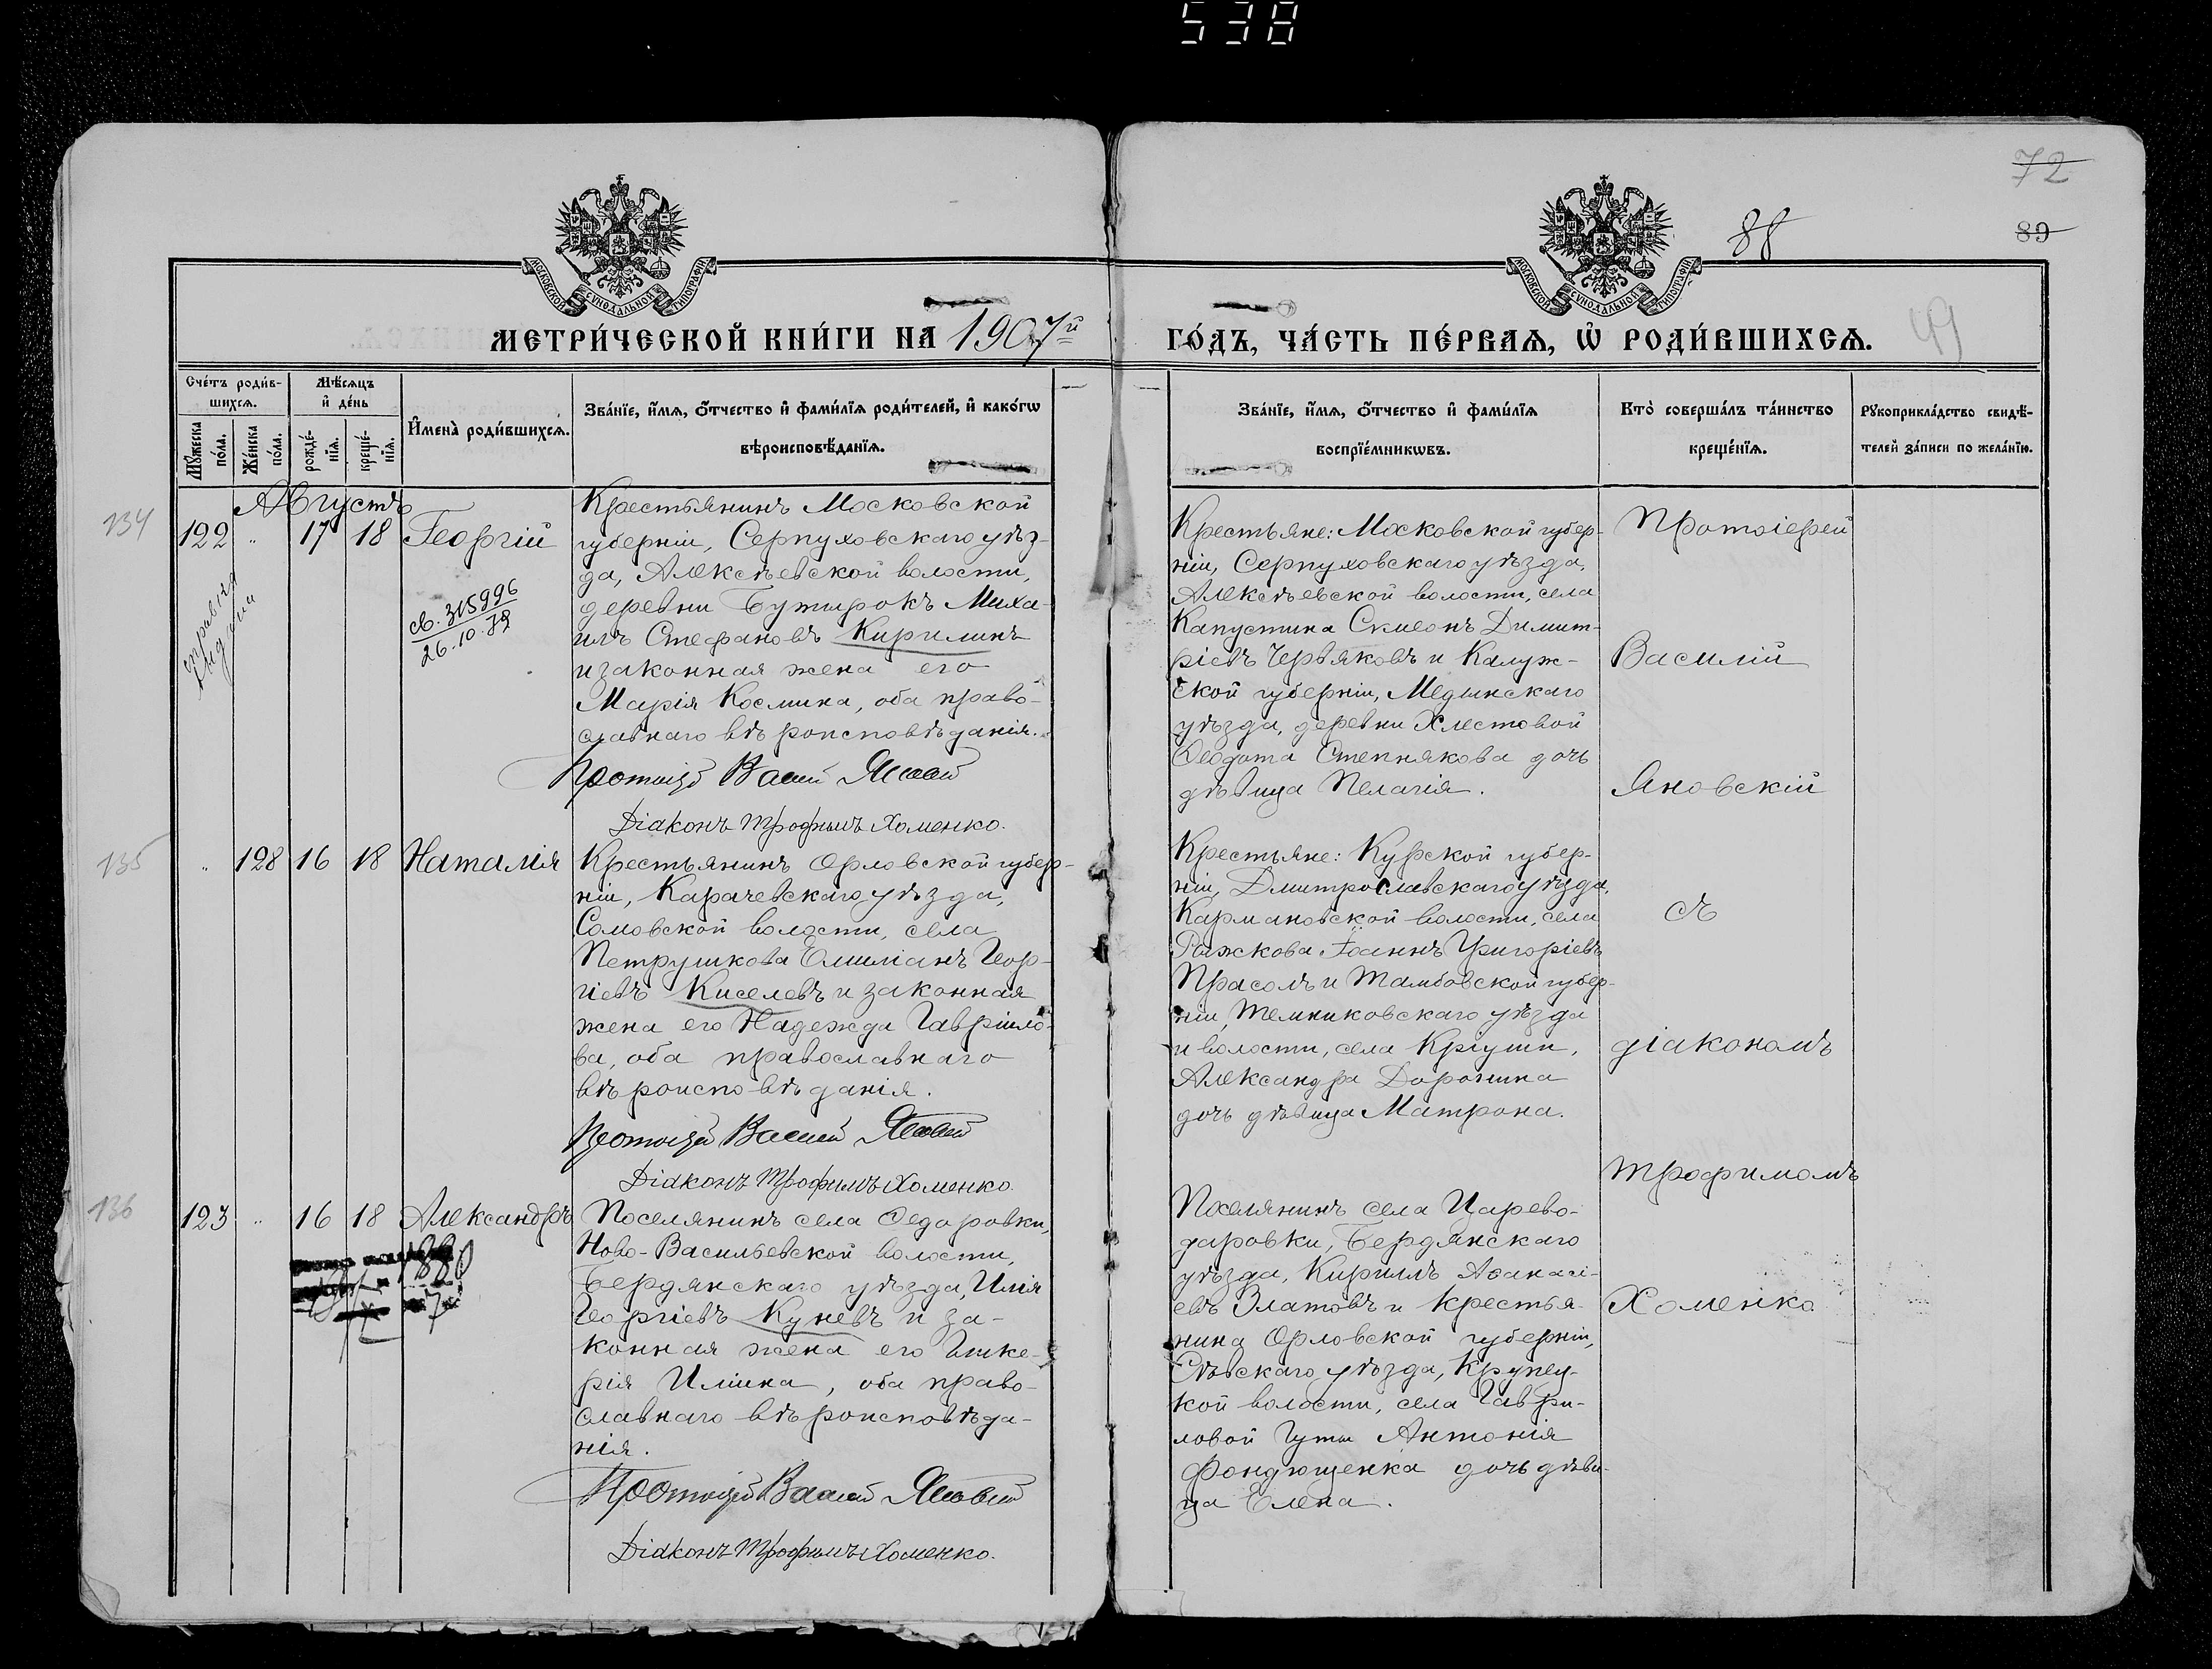 538
72
88
89
49
МОСКОВСКОЙ СѴНОДАЛЬНОЙ ТИПОГРАФІИ
МОСКОВСКОЙ СѴНОДАЛЬНОЙ ТИПОГРАФІИ
МЕТРИ́ЧЕСКОЙ КНИ́ГИ НА 1907й
ГО́ДЪ, ЧА́СТЬ ПЕ́РВАѦ, Ѡ҆ РОДИ́ВШИХСѦ.
Сче́тъ роди́в-
шихсѧ.
Мꙋ́жеска по́ла.
Же́нска по́ла.
Мѣ́сѧцъ
и҆ де́нь
рожде́-нїѧ.
креще́-нїѧ.
И҆мена̀ роди́вшихсѧ.
Зва́нїе, и҆́мѧ, ѻ҆́тчество и҆ фами́лїѧ роди́телей, и҆ како́гѡ
вѣроисповѣ́данїѧ.
Зва́нїе, и҆́мѧ, ѻ҆́тчество и҆ фами́лїѧ
воспрїе́мникѡвъ.
Кто̀ соверша́лъ та́инство
креще́нїѧ.
Рꙋкоприкла́дство свидѣ́-
телей за́писи по жела́нїю.
Августъ
134
122 " 17 18 Георгій
св. 315996
26.10.79
Крестьянинъ Московской
губерніи, Серпуховскаго уѣз-
да, Алексѣевской волости,
деревни Бутырокъ Миха-
илъ Стефановъ Кирилинъ
и законная жена его
Марія Космина, оба право-
славнаго вѣроисповѣданія.
Діаконъ Трофимъ Хоменко.
Крестьяне: Московской губер-
ніи, Серпуховскаго уѣзда,
Алексѣевской волости, села
Капустина Симеонъ Димит-
ріевъ Червяковъ и Калуж-
ской губерніи, Медынскаго
уѣзда, деревни Хлестовой
Ѳеодота Степнякова дочь
дѣвица Пелагія.
Протоіерей
Василій
Яновскій
съ
діакономъ
Трофимомъ
Хоменко
135
" 128 16 18 Наталія
Крестьянинъ Орловской губер-
ніи, Карачевскаго уѣзда,
Сомовской волости, села
Петрушкова Емиліанъ Геор-
гіевъ Киселевъ и законная
жена его Надежда Гавріило-
ва, оба православнаго
вѣроисповѣданія.
Діаконъ Трофимъ Хоменко.
Крестьяне: Курской губер-
ніи, Дмитрославскаго уѣзда,
Кармановской волости, села
Ражкова Іоаннъ Григоріевъ
Прасолъ и Тамбовской губер-
ніи, Темниковскаго уѣзда
и волости, села Кріуши,
Александра Доронина
дочь дѣвица Матрона.
136
123 " 16 18 Александръ
Поселянинъ села Ѳедоровки,
Ново-Васильевской волости,
Бердянскаго уѣзда, Илія
Георгіевъ Куневъ и за-
конная жена его Глике-
рія Иліина, оба право-
славнаго вѣроисповѣда-
нія.
Діаконъ Трофимъ Хоменко.
Поселянинъ села Царево-
даровки, Бердянскаго
уѣзда, Кириллъ Аѳанасі-
евъ Златовъ и крестья-
нина Орловской губерніи,
Сѣвскаго уѣзда, Крупец-
кой волости, села Гаври-
ловой Гуты Антонія
Фондющенка дочь дѣви-
ца Елена.